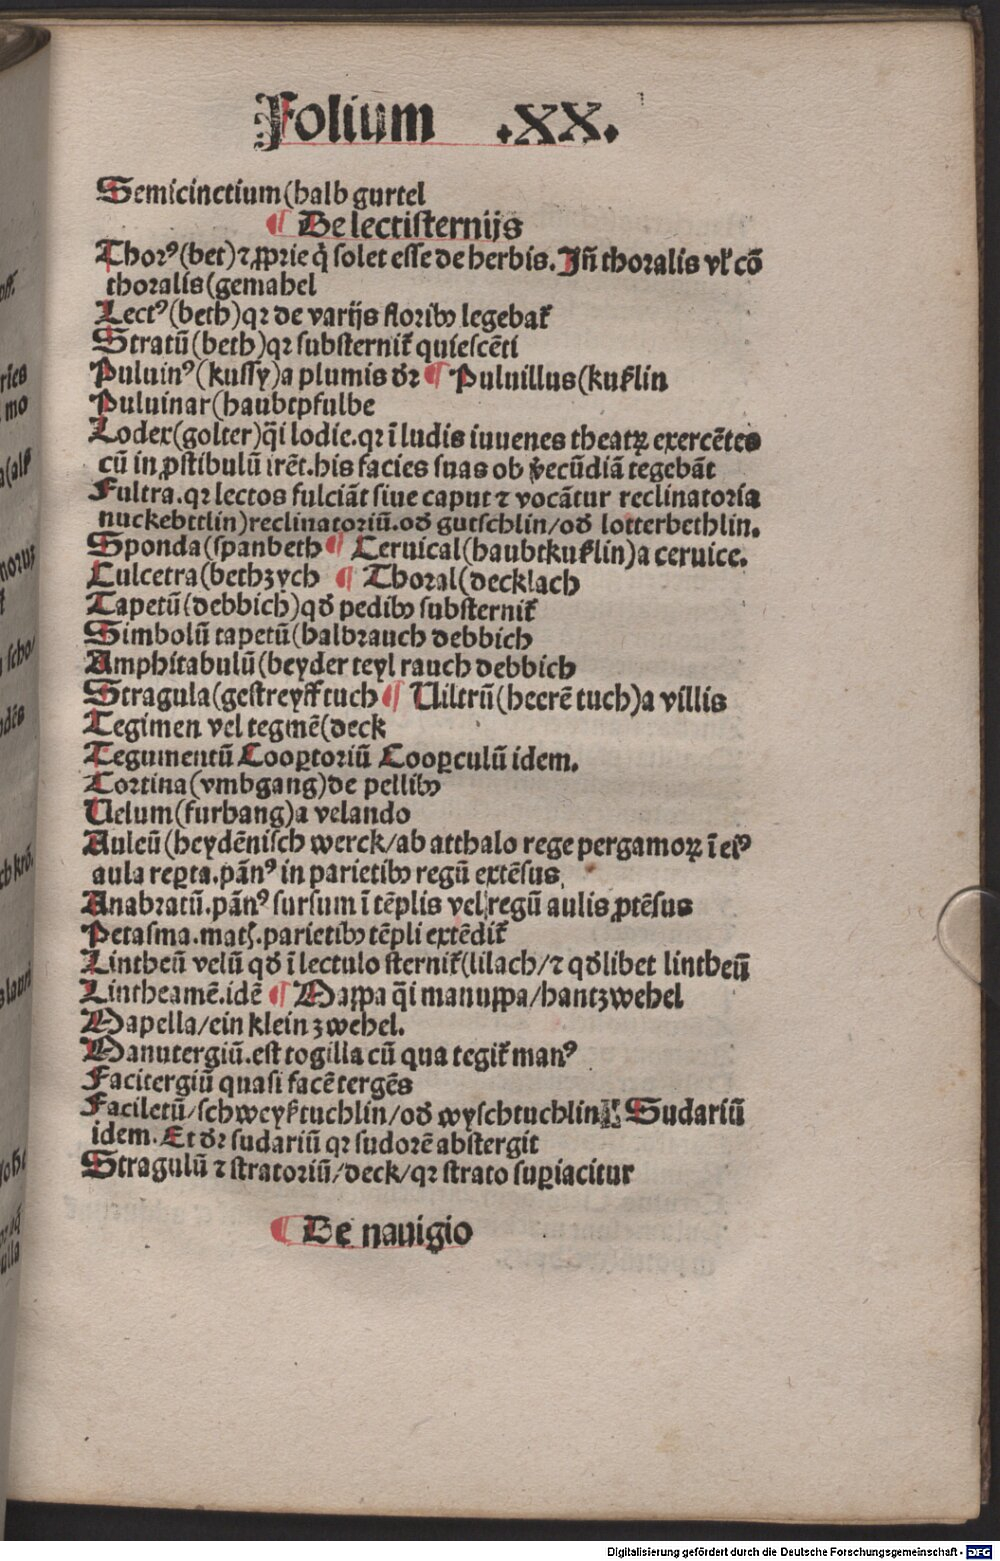 Folium .XX.
Semicinctium(halb gurtel
¶ De lectisternijs
Thorꝰ(bet)⁊ ꝓprie q̇ solet esse de herbis. Jñ thoralis vl̕ cō
thoralis(gemahel
Lectꝰ(beth)qꝛ de varijs floribꝰ legebat̕
Stratū(beth)qꝛ substernit̕ quiescēti
Puluinꝰ(kussy)a plumis dꝛ ¶ Puluillus(kuſlin
Puluinar(haubtpfulbe
Lodex(golter)q̄i lodic.qꝛ ī ludis iuuenes theatꝝ exercētes
cū in ꝓstibulū irēt.his facies suas ob v̓ecūdiā tegebāt
Fultra.qꝛ lectos fulciāt siue caput ⁊ vocātur reclinatoria
nuckebttlin)reclinatoriū.oď gutschlin/oď lotterbethlin.
Sponda(spanbeth ¶ Ceruical(haubtkuſlin)a ceruice.
Culcetra(bethzych ¶ Thoral(decklach
Tapetū(debbich)qď pedibꝰ substernit̕
Simbolū tapetū(halbrauch debbich
Amphitabulū(beyder teyl rauch debbich
Stragula(gestreyfftuch ¶ Uiltrū(heerē tuch)a villis
Tegimen vel tegmē(deck
Tegumentū Cooꝑtoriū Cooꝑculū idem.
Cortina(vmbgang)de pellibꝰ
Uelum(furhang)a velando
Auleū(heydēnisch werck/ab atthalo rege pergamoꝝ ī eiꝰ
aula reꝑta.pānꝰ in parietibꝰ regū extēsus.
Anabratū.pānꝰ sursum ī tēplis vel regū aulis ꝓtēsus
Petasma.mat̕.parietibꝰ tēpli extēdit̕
Lintheū velū qď ī lectulo sternit̕(lilach/⁊ qďlibet lintheū
Lintheamē.idē ¶ Mappa q̄i manuppa/hantzwehel
Mapella/ein klein zwehel.
Manutergiū.est togilla cū qua tegit̕ manꝰ
Facitergiū quasi facē tergēs
Faciletū/schweyſtuchlin/oď wyschtuchlin ¶ Sudariū
idem. Et dꝛ sudariū qꝛ sudorē abstergit
Stragulū ⁊ stratoriū/deck/qꝛ strato suꝑiacitur
¶ De nauigio
Digitalisierung gefördert durch die Deutsche Forschungsgemeinschaft - DFG